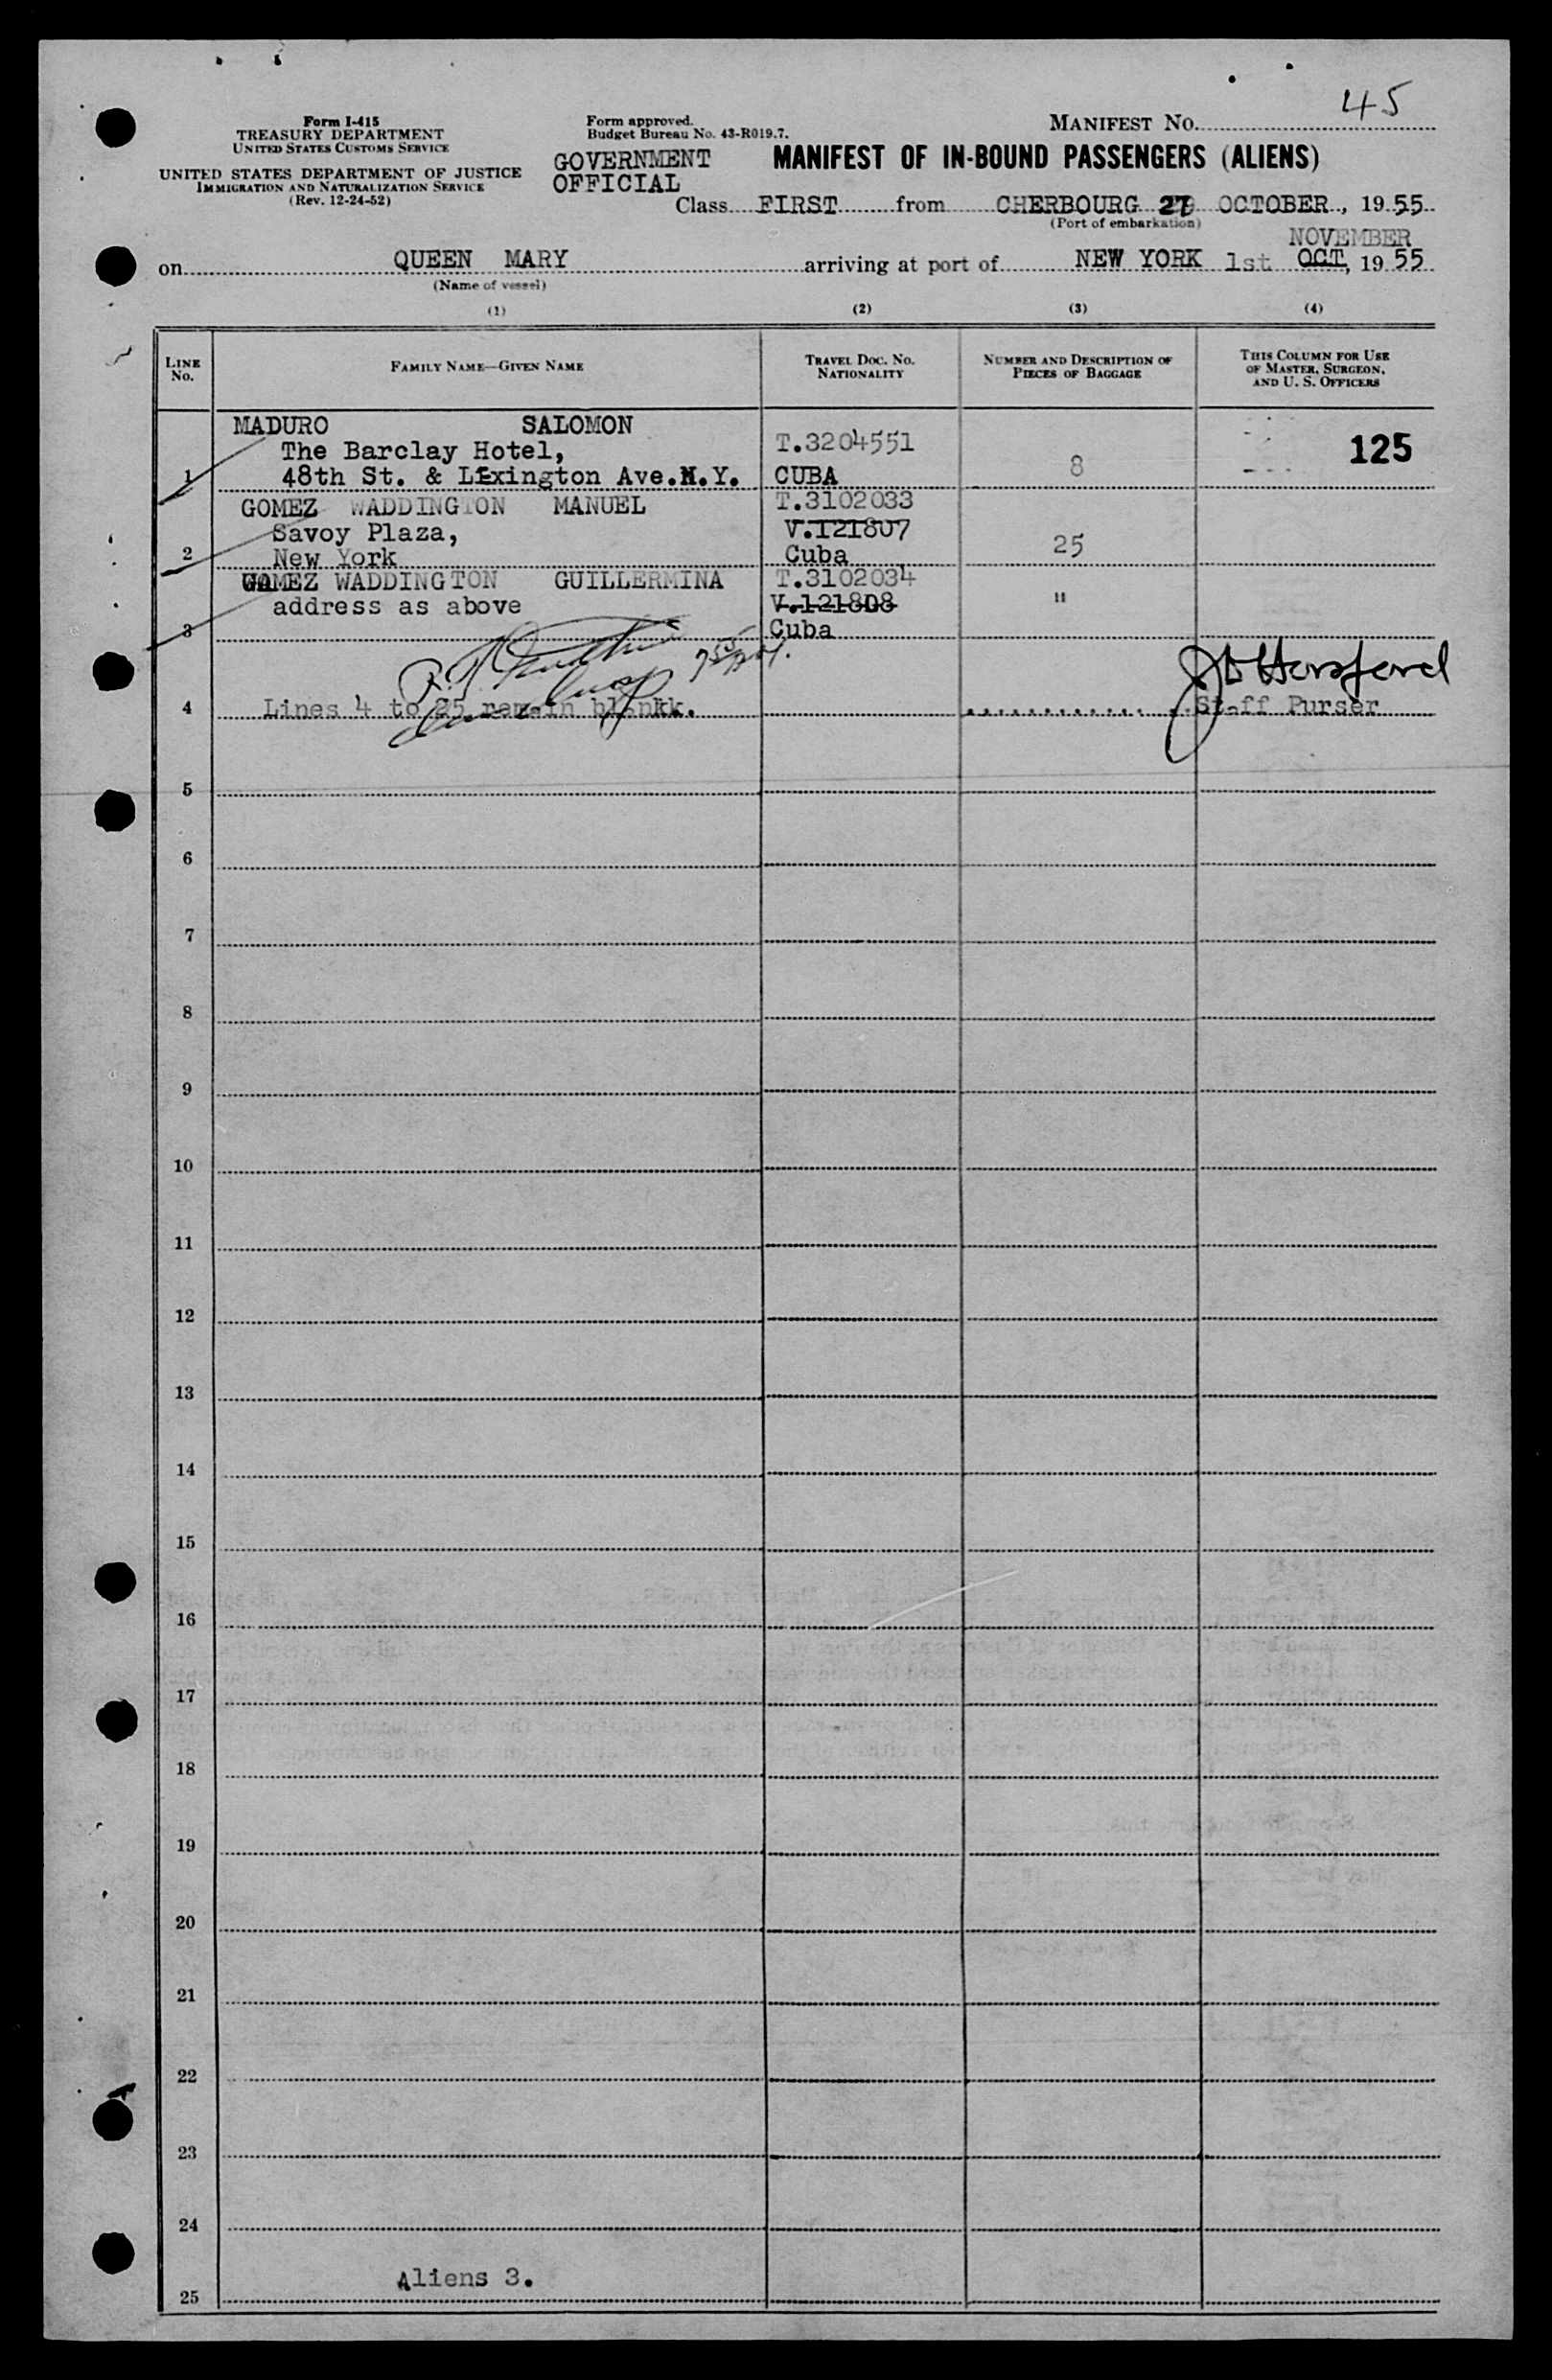 45
Form I-415
TREASURY DEPARTMENT
UNITED STATES CUSTOMS SERVICE
UNITED STATES DEPARTMENT OF JUSTICE
IMMIGRATION AND NATURALIZATION SERVICE
(Rev. 12-24-52)
Form approved.
Budget Bureau No. 43-R019.7.
MANIFEST No.
GOVERNMENT
OFFICIAL
MANIFEST OF IN-BOUND PASSENGERS (ALIENS)
Class FIRST from CHERBOURG OCTOBER, 1955
(Port of embarkation)
NOVEMBER
on QUEEN MARY arriving at port of NEW YORK 1st OCT, 1955
(Name of vessel)
(1) (2) (3) (4)
LINE No. FAMILY NAME—GIVEN NAME TRAVEL DOC. No. NATIONALITY NUMBER AND DESCRIPTION OF PIECES OF BAGGAGE THIS COLUMN FOR USE OF MASTER, SURGEON, AND U. S. OFFICERS
MADURO SALOMON
The Barclay Hotel, T.3204551 125
1 48th St. & LExington Ave.N.Y. CUBA 8
GOMEZ WADDINGTON MANUEL T.3102033
Savoy Plaza, V.121807
2 New York Cuba 25
GOMEZ WADDINGTON GUILLERMINA T.3102034
address as above V.121808 "
3 Cuba
4 Lines 4 to 25 remain blankk. Staff Purser
5
6
7
8
9
10
11
12
13
14
15
16
17
18
19
20
21
22
23
24
Aliens 3.
25